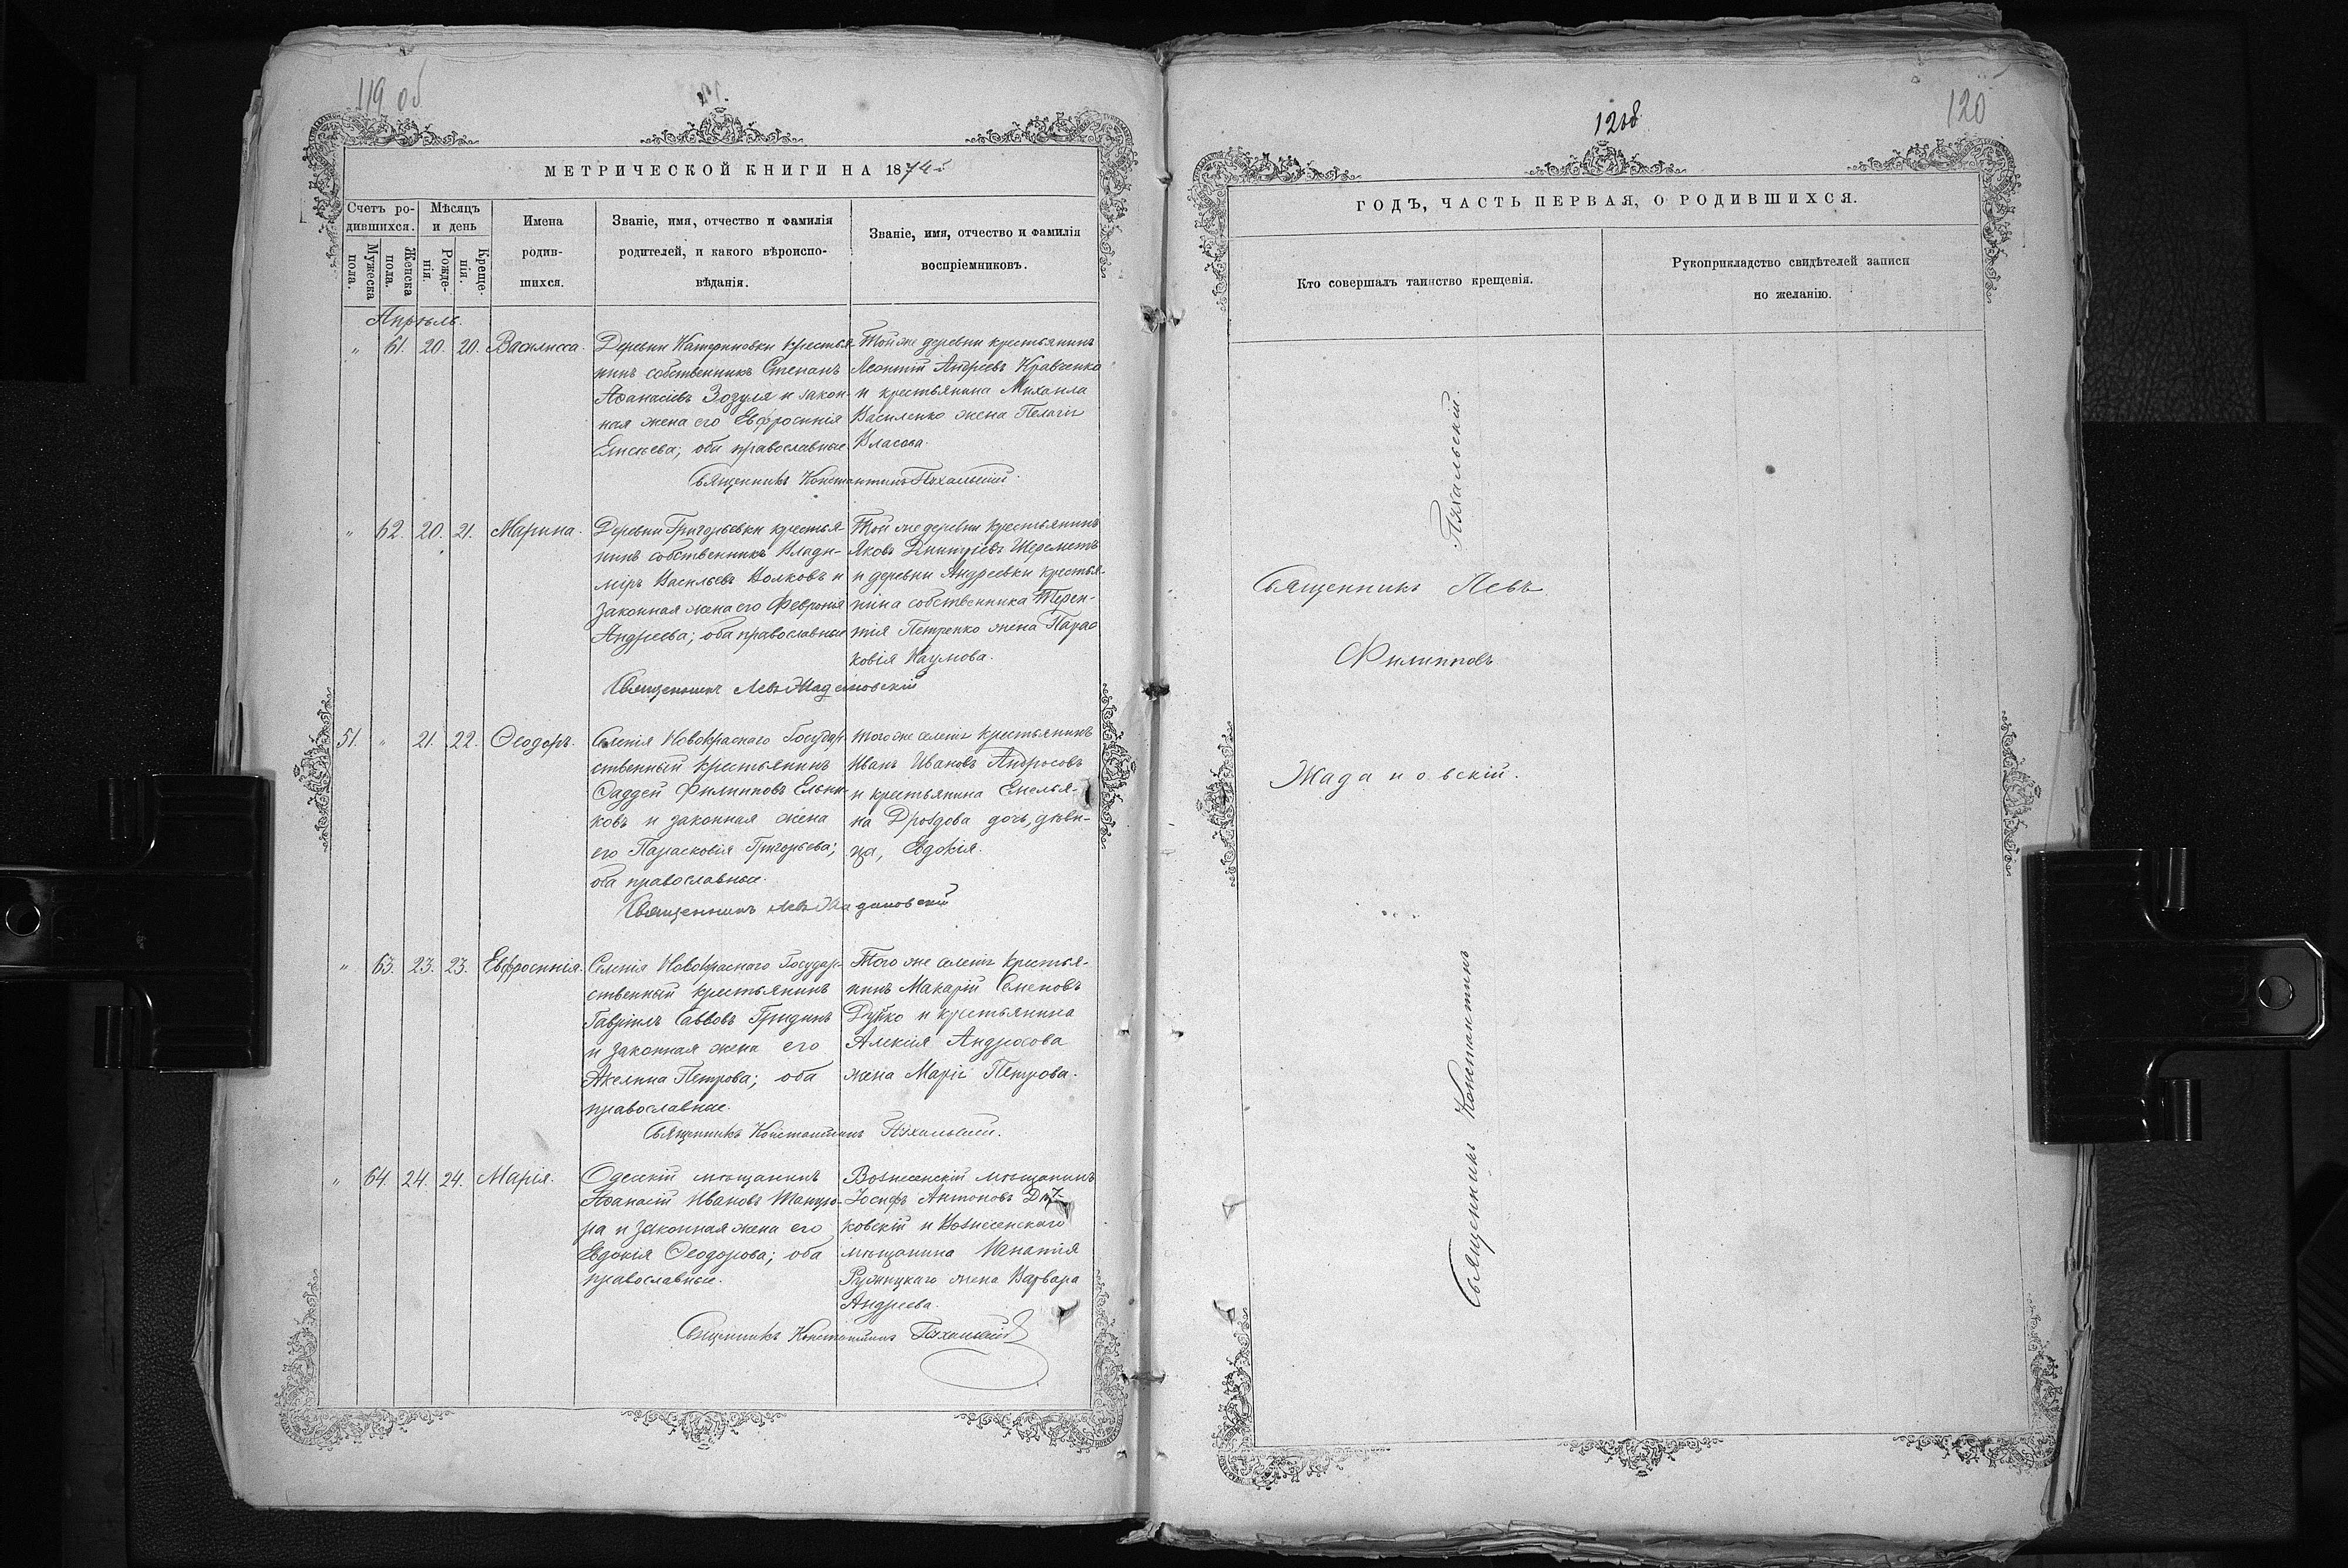 119 об
МЕТРИЧЕСКОЙ КНИГИ НА 1874
Счетъ ро-
дившихся.
Мѣсяцъ
и день
Имена
родив-
шихся.
Званіе, имя, отчество и фамилія
родителей, и какого вѣроиспо-
вѣданія.
Званіе, имя, отчество и фамилія
воспріемниковъ.
Мужеска
пола.
Женска
пола.
Рожде-
нія.
Креще-
нія.
Апрѣль.
" 61. 20. 20. Василисса.
Деревни Катериновки крестья-
нинъ собственникъ Степанъ
Аѳанасіевъ Зозуля и закон-
ная жена его Евфросинія
Елисѣева; оба православные
Той же деревни крестьянинъ
Леонтій Андреевъ Кравченко
и крестьянина Михаила
Василенко жена Пелагія
Власова.
Священникъ Константинъ Пѣхальскій.
" 62. 20. 21. Марина.
Деревни Григорьевки крестья-
нинъ собственникъ Влади-
міръ Васильевъ Волковъ и
законная жена его Февронія
Андреева; оба православные
Той же деревни крестьянинъ
Яковъ Димитріевъ Шереметъ
и деревни Андреевки крестья-
нина собственника Терен-
тія Петренко жена Парас
ковія Наумова.
Священникъ Левъ Жадановскій
51. " 21. 22. Ѳеодоръ.
Селенія Новокраснаго Государ-
ственный крестьянинъ
Ѳаддей Филипповъ Ельни-
ковъ и законная жена
его Парасковія Григорьева;
оба православные.
Того же селенія крестьянинъ
Иванъ Ивановъ Андросовъ
и крестьянина Емелья-
на Дроздова дочь, дѣви-
ца, Евдокія.
Священникъ Левъ Жадановскій
" 63. 23. 23. Евфросинія.
Селенія Новокраснаго Государ-
ственный крестьянинъ
Гавріилъ Саввовъ Гридинъ
и законная жена его
Акелина Петрова; оба
православные.
Того же селенія крестья-
нинъ Макарій Семеновъ
Дуйко и крестьянина
Алексія Андросова
жена Марія Петрова.
Священникъ Константинъ Пѣхальскій.
" 64. 24. 24. Марія.
Одесскій мѣщанинъ
Аѳанасій Ивановъ
ра и законная жена его
Евдокія Ѳеодорова; оба
православные.
Вознесенскій мѣщанинъ
Іосифъ Антоновъ
ковскій и Вознесенскаго
мѣщанина Игнатія
Ружицкаго жена Варвара
Андреева.
Священникъ Константинъ Пѣхальскій
120
ГОДЪ, ЧАСТЬ ПЕРВАЯ, О РОДИВШИХСЯ.
Кто совершалъ таинство крещенія.
Рукоприкладство свидѣтелей записи
по желанію.
Священникъ Левъ
Филипповъ
Жадановскій.
Священникъ Константинъ Пѣхальскій.